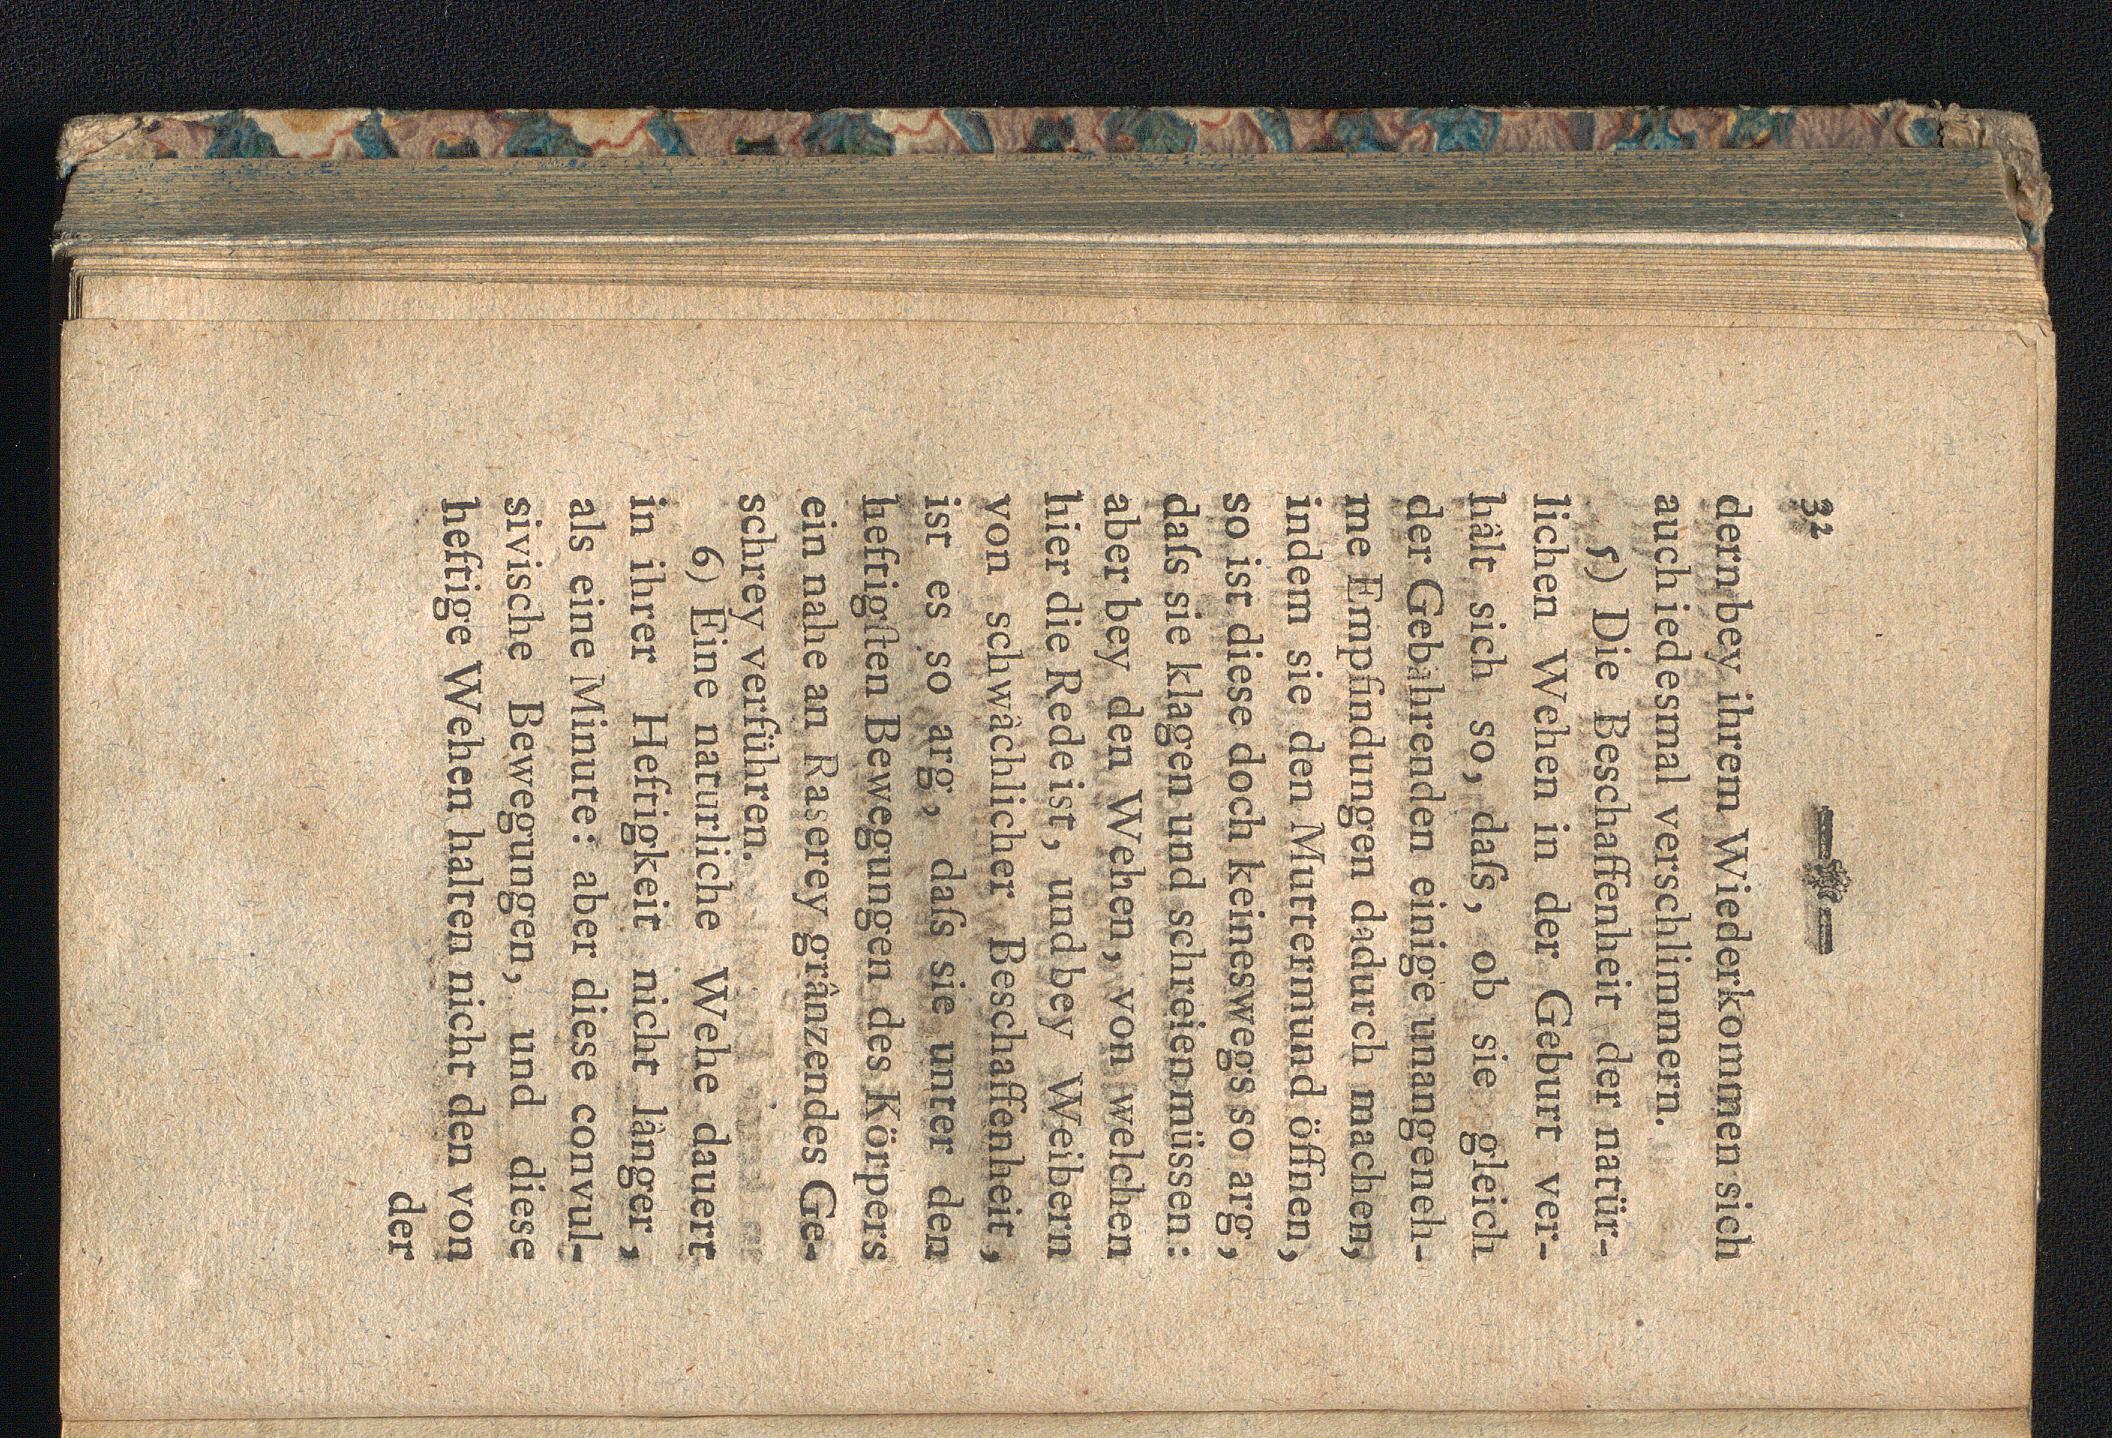 32
dern bey ihrem Wiederkommen sich
auch iedesmal verschlimmern.
5) Die Beschaffenheit der natür-
lichen Wehen in der Geburt ver-
hält sich so, daſs, ob sie gleich
der Gebährenden einige unangeneh-
me Empfindungen dadurch machen,
indem sie den Muttermund öffnen,
so ist diese doch keineswegs so arg,
daſs sie klagen und schreien müssen:
aber bey den Wehen, von welchen
hier die Rede ist, und bey Weibern
von schwächlicher Beschaffenheit,
ist es so arg, daſs sie unter den
heftigſten Bewegungen des Körpers
ein nahe an Raserey gränzendes Ge-
schrey verführen.
6) Eine naturliche Wehe dauert
in ihrer Heftigkeit nicht länger,
als eine Minute: aber diese convul-
sivische Bewegungen, und diese
heftige Wehen halten nicht den von
der